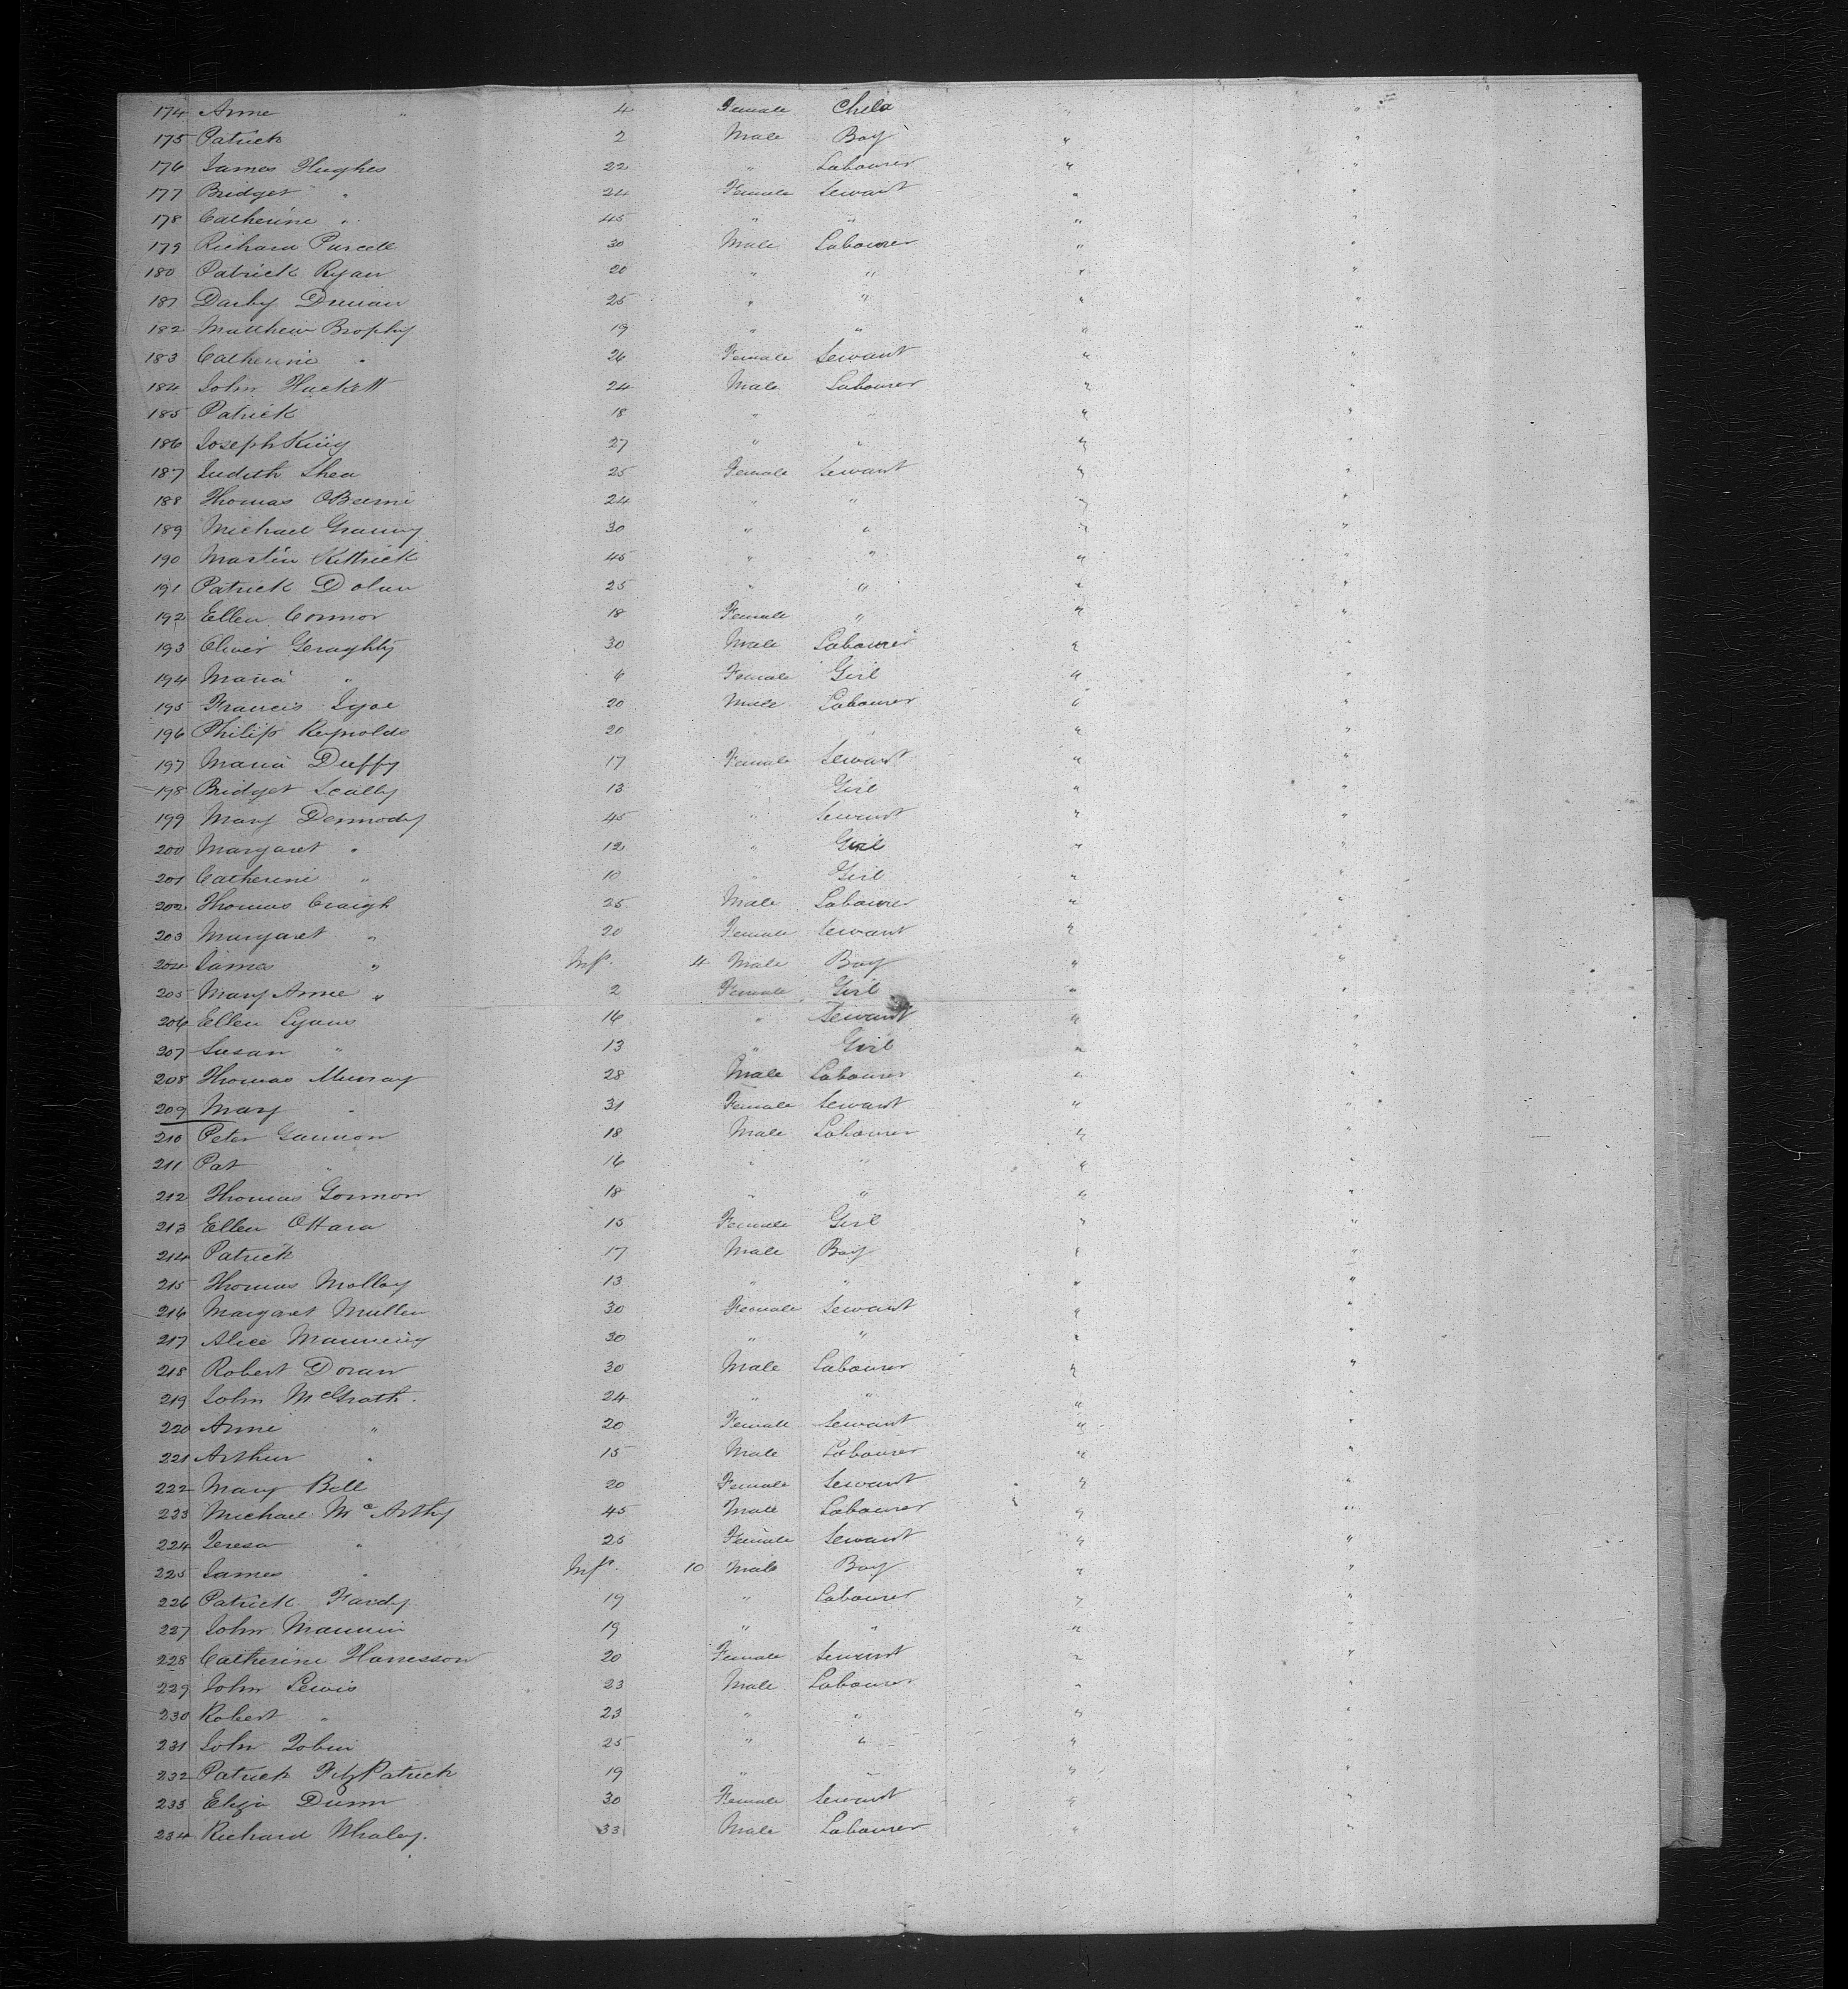 174 Anne " 4 Female Child " "
175 Patrick 2 Male Boy " "
176 James Hughes 22 " Labourer " "
177 Bridget " 24 Female Servant " "
178 Catherine " 45 " " " "
179 Richard Purcell 30 Male Labourer " "
180 Patrick Ryan 20 " " " "
181 Darby 25 " " " "
182 Matthew Brophy 19 " " " "
183 Catherine " 26 Female Servant " "
184 John Hackett 24 Male Labourer " "
185 Patrick 18 " " " "
186 Joseph King 27 " " " "
187 Judith Shea 25 Female Servant " "
188 Thomas OBeirne 24 " " " "
189 Michael 30 " " " "
190 Martin Kittrick 45 " " " "
191 Patrick Dolan 25 " " " "
192 Ellen Connor 18 Female " " "
193 Oliver Geraghty 30 Male Labourer " "
194 Maria " 6 Female Girl " "
195 Francis 20 Male Labourer " "
196 Philip Reynolds 20 " " " "
197 Maria Duffy 17 Female Servant " "
198 Bridget Scally 13 " Girl " "
199 Mary Dermody 45 " Servant " "
200 Margaret " 12 " Girl " "
201 Catherine " 10 " Girl " "
202 Thomas Craigh 25 Male Labourer " "
203 Margaret " 20 Female Servant " "
204 James " Inft. 4 Male Boy " "
205 Mary Anne " 2 Female Girl " "
206 Ellen Lyons 16 " Servant " "
207 Susan " 13 " Girl " "
208 Thomas Murray 28 Male Labourer " "
209 Mary " 31 Female Servant " "
210 Peter Gannon 18 Male Labourer " "
211 Pat " 16 " " " "
212 Thomas Gormon 18 " " " "
213 Ellen OHara 15 Female Girl " "
214 Patrick 17 Male Boy " "
215 Thomas Molloy 13 " " " "
216 Margaret Mullen 30 Female Servant " "
217 Alice Manning 30 " " " "
218 Robert Doran 30 Male Labourer " "
219 John McGrath. 24 " " " "
220 Anne " 20 Female Servant " "
221 Arthur " 15 Male Labourer " "
222 Mary Bell 20 Female Servant " "
233 Michael Mc Arthy 45 Male Labourer " "
224 Teresa " 25 Female Servant " "
225 James " Inft. 10 Male Boy " "
226 Patrick Fardy 19 " Labourer " "
227 John Mannin 19 " " " "
228 Catherine Harrisson 20 Female Servant " "
229 John Lewis 23 Male Labourer " "
230 Robert " 23 " " " "
231 John Tobin 25 " " " "
232 Patrick FitzPatrick 19 " " " "
233 Eliza Dunn 30 Female Servant " "
234 Richard Whaley. 33 Male Labourer " "